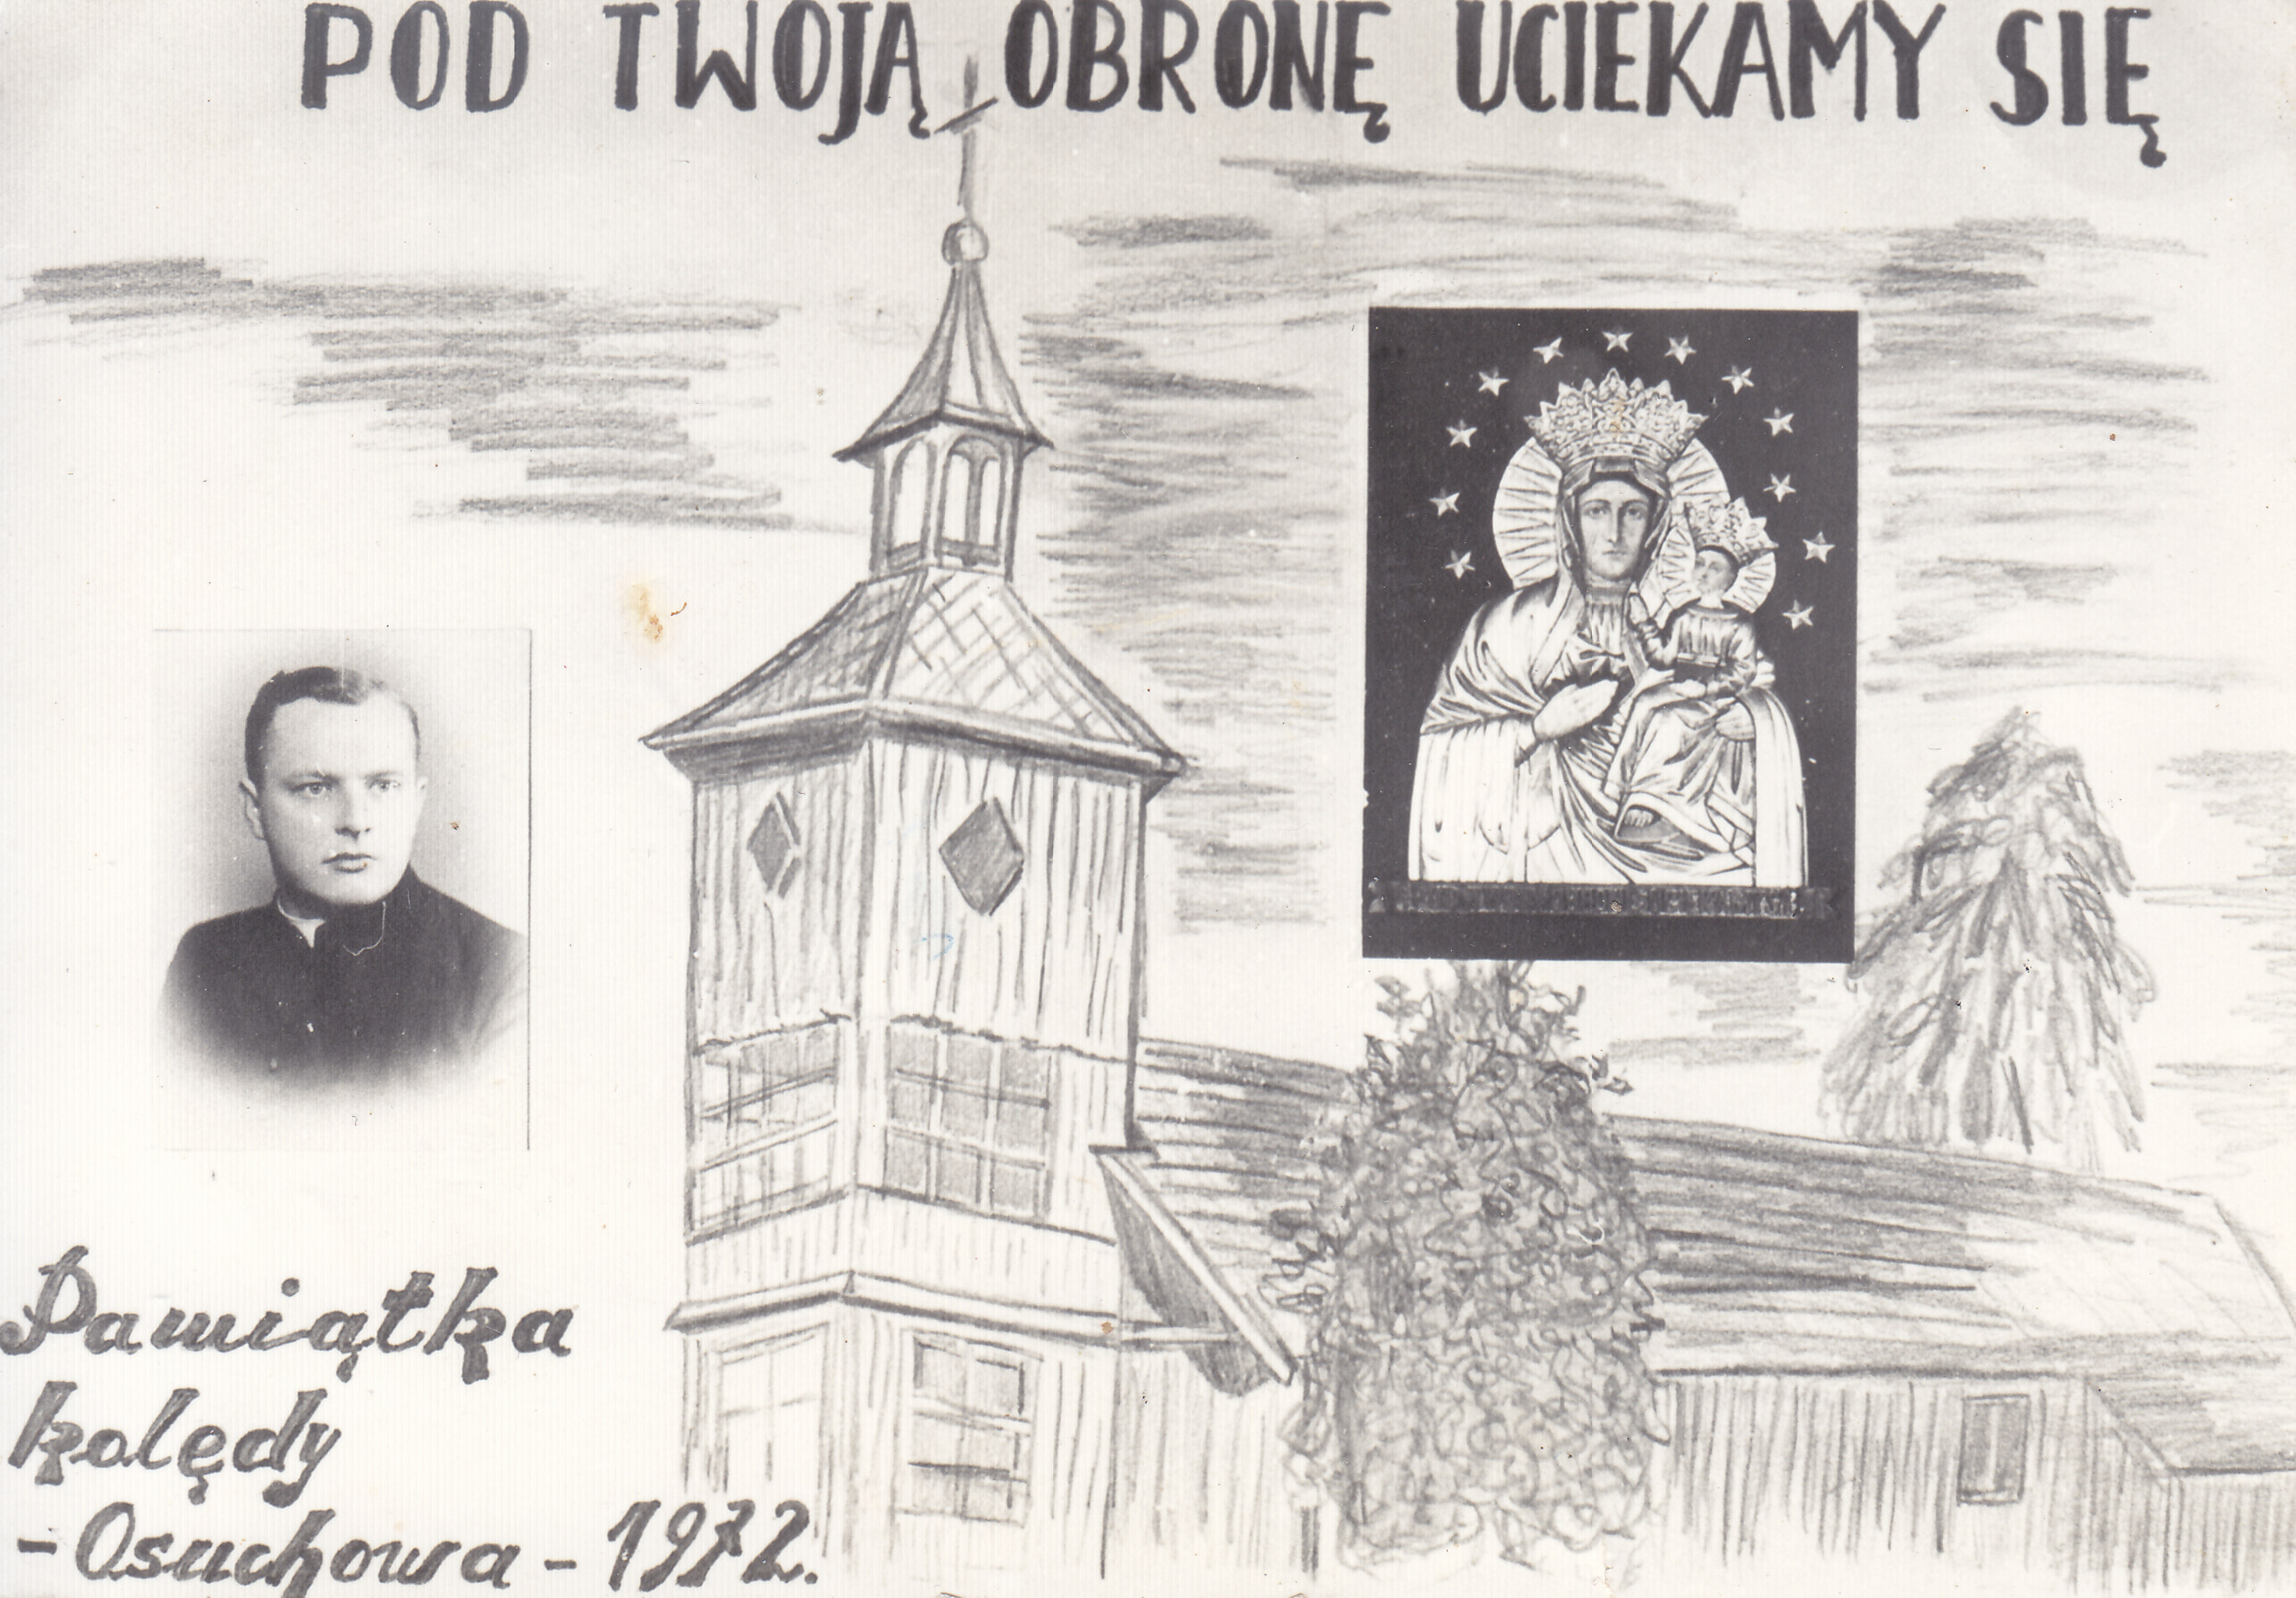 POD TWOJĄ OBRONĘ UCIEKAMY SIĘ
Pamiątka
kolędy
- Osuchowa - 1972.